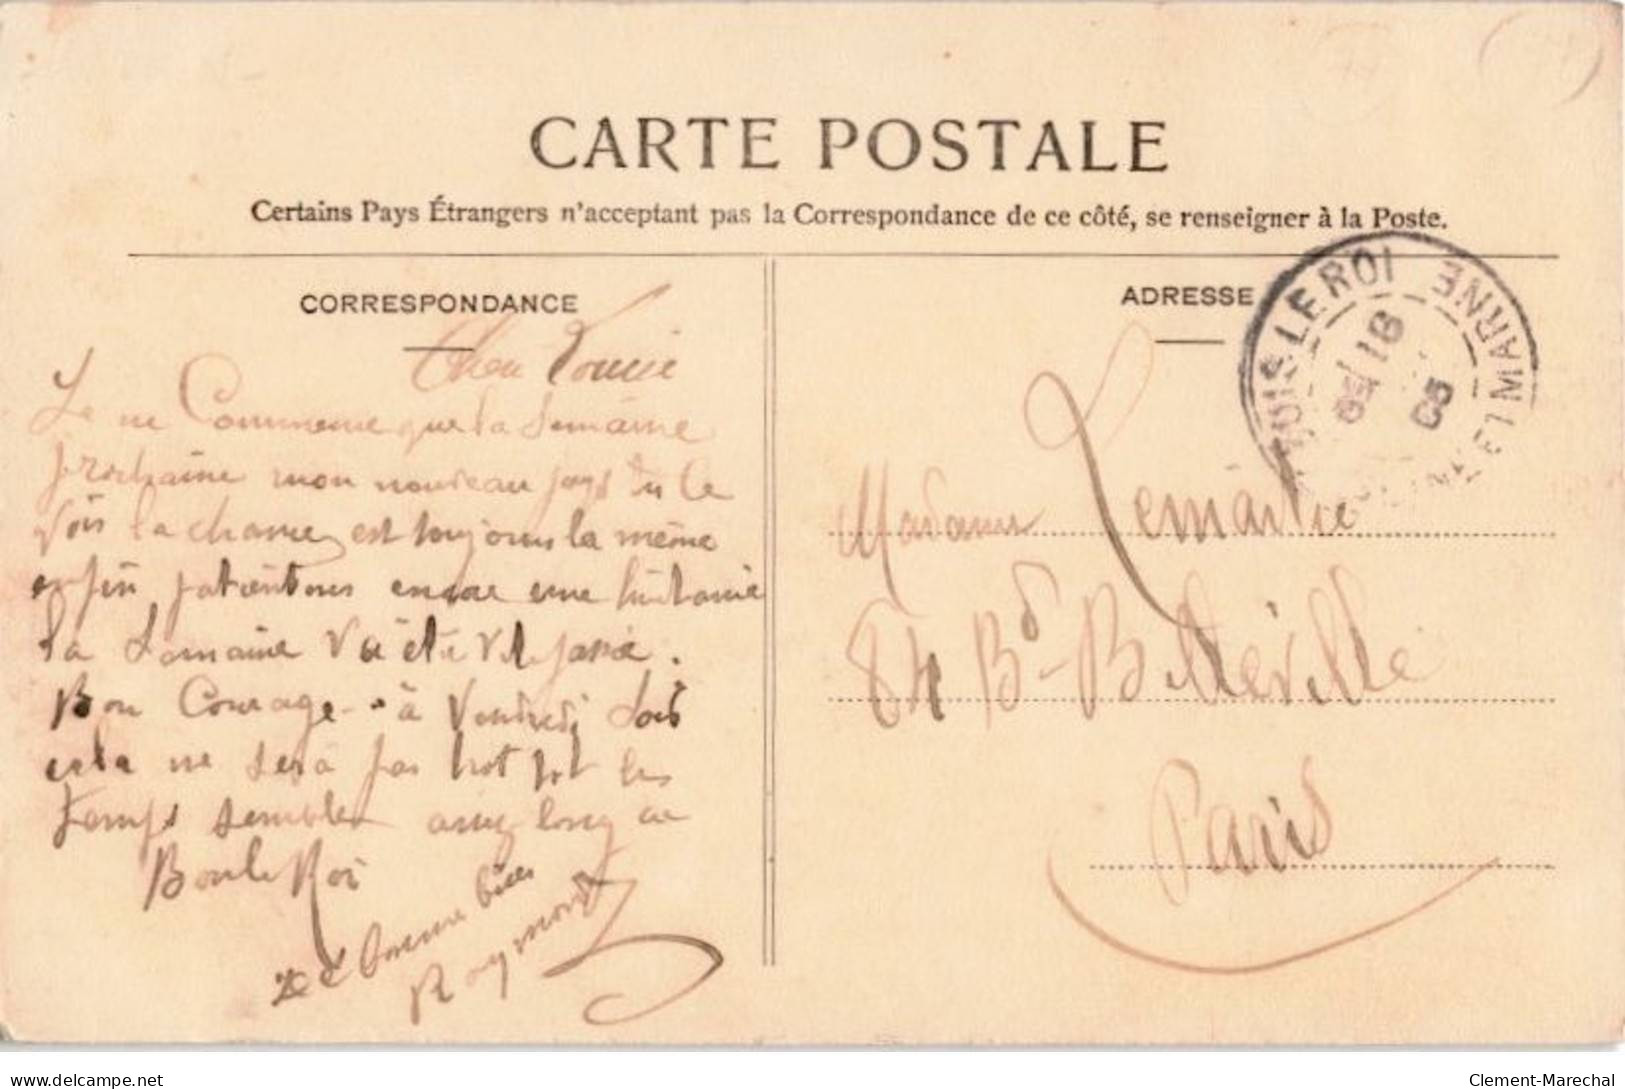 CARTE POSTALE
Certains Pays Étrangers n'acceptant pas la Correspondance de ce côté, se renseigner à la Poste.
CORRESPONDANCE
Je ne Commence que la Semaine
prochaine mon nouveau pays tu le
vois la chance est toujours la même
enfin patientons encore une huitaine
la Semaine va être vite passée.
Bon Courage à Vendredi
cela ne sera pas trop tôt les
temps semble assez long au
Bout le Roi
bonne
Raymond
ADRESSE
LE ROI
SEINE & MARNE
18
05
Madame Lemaître
84 Bd Belleville
Paris
Clement-Marechal